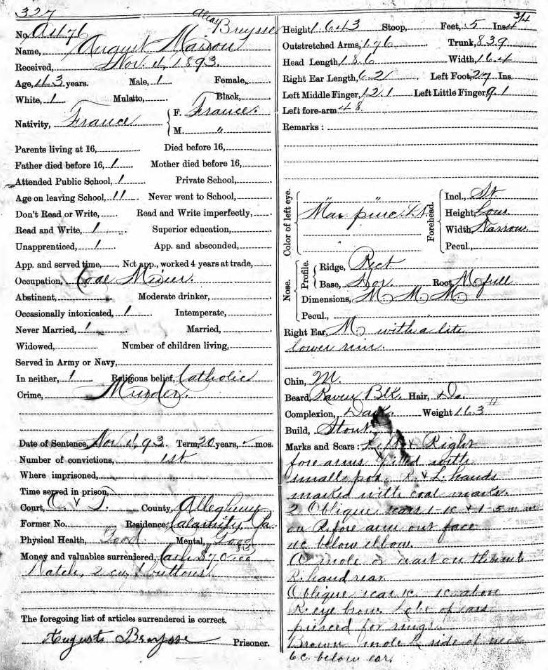 327
No. A1171 alias Bruyse
Name, August Masson
Received, Nov. 11, 1893.
Age, 43 years. Male, 1 Female,
White, 1 Mulatto, Black,
Nativity, France { F. France.
M. "
Parents living at 16, Died before 16,
Father died before 16, 1 Mother died before 16,
Attended Public School, 1 Private School,
Age on leaving School, 11 Never went to School,
Don't Read or Write, Read and Write imperfectly,
Read and Write, 1 Superior education,
Unapprenticed, 1 App. and absconded,
App. and served time, Not app., worked 4 years at trade,
Occupation, Coal Miner.
Abstinent, Moderate drinker,
Occasionally intoxicated, 1 Intemperate,
Never Married, 1 Married,
Widowed, Number of children living,
Served in Army or Navy,
In neither, 1 Religious belief, Catholic
Crime, Murder.
Date of Sentence, Nov. 11, 93. Term, 20 years, - mos.
Number of convictions, 1st
Where imprisoned,
Time served in prison,
Court, O. & T. County, Allegheny
Former No. Residence, Pa.
Physical Health, Good Mental, Good
Money and valuables surrendered, Cash
Watch, 2 cuff buttons
The foregoing list of articles surrendered is correct.
Auguste Prisoner.
Height, 1 643 Stoop, Feet, 5 Ins. 4 3/4
Outstretched Arms, 1 76 Trunk, 83.9
Head Length, 18.6 Width, 16.4
Right Ear Length, 6.2 Left Foot, 27 Ins.
Left Middle Finger, 12.1 Left Little Finger, 9.1
Left fore-arm 48
Remarks:
Color of left eye.
Forehead.
Incl., St
Height,
Width, Narrow
Pecul.,
Nose.
Profile.
Ridge, Rect
Base, Hor. Root, M full
Dimensions, M M M
Pecul.,
Right Ear, M with a lite
lower rim.
Chin, M.
Beard, Raven Blk Hair, Do.
Complexion, Dark Weight 163 "
Build, Stout
Marks and Scars: Left & Right
fore arms with
smallpox. R & L hands
marked with coal marks.
2 Oblique scars
on R fore arm our face
below elbow.
mole or wart on thumb
R. hand rear
Oblique scar above
R eye brow. Lobe of ears
pierced for rings.
Brown mole R side of neck
6 c below ear.